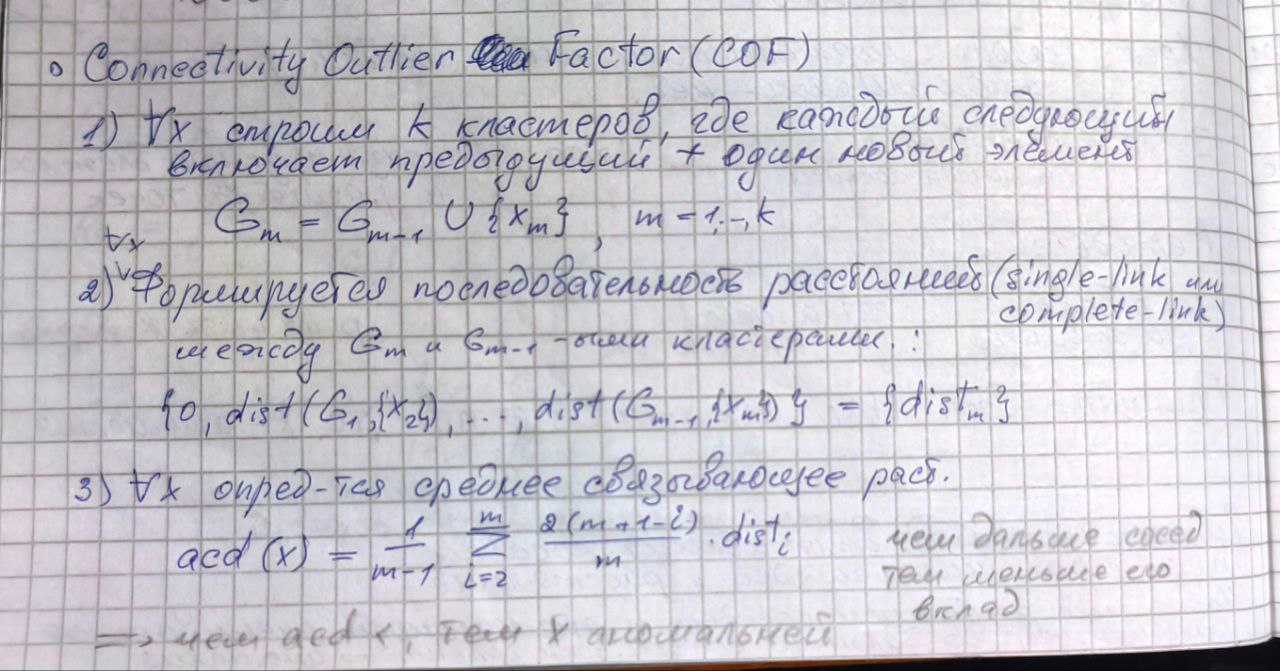 o Connectivity Outlier Factor (COF)
1) ∀x строим k кластеров, где каждый следующий
включает предыдущий + один новый элемент
G_m = G_{m-1} ∪ {x_m}, m = 1,..,k
∀x
2) Формируется последовательность расстояний (single-link или
complete-link)
между G_m и G_{m-1}-ыми кластерами.:
{0, dist(G_1,{x_2}), ..., dist(G_{m-1},{x_m})} = {dist_m}
3) ∀x опред-тся среднее связывающее раст.
acd(x) = \frac{1}{m-1} \sum_{i=2}^{m} \frac{2(m+1-i)}{m} · dist_i
чем дальше сосед
тем меньше его
вклад
=> чем acd <, тем x аномальней